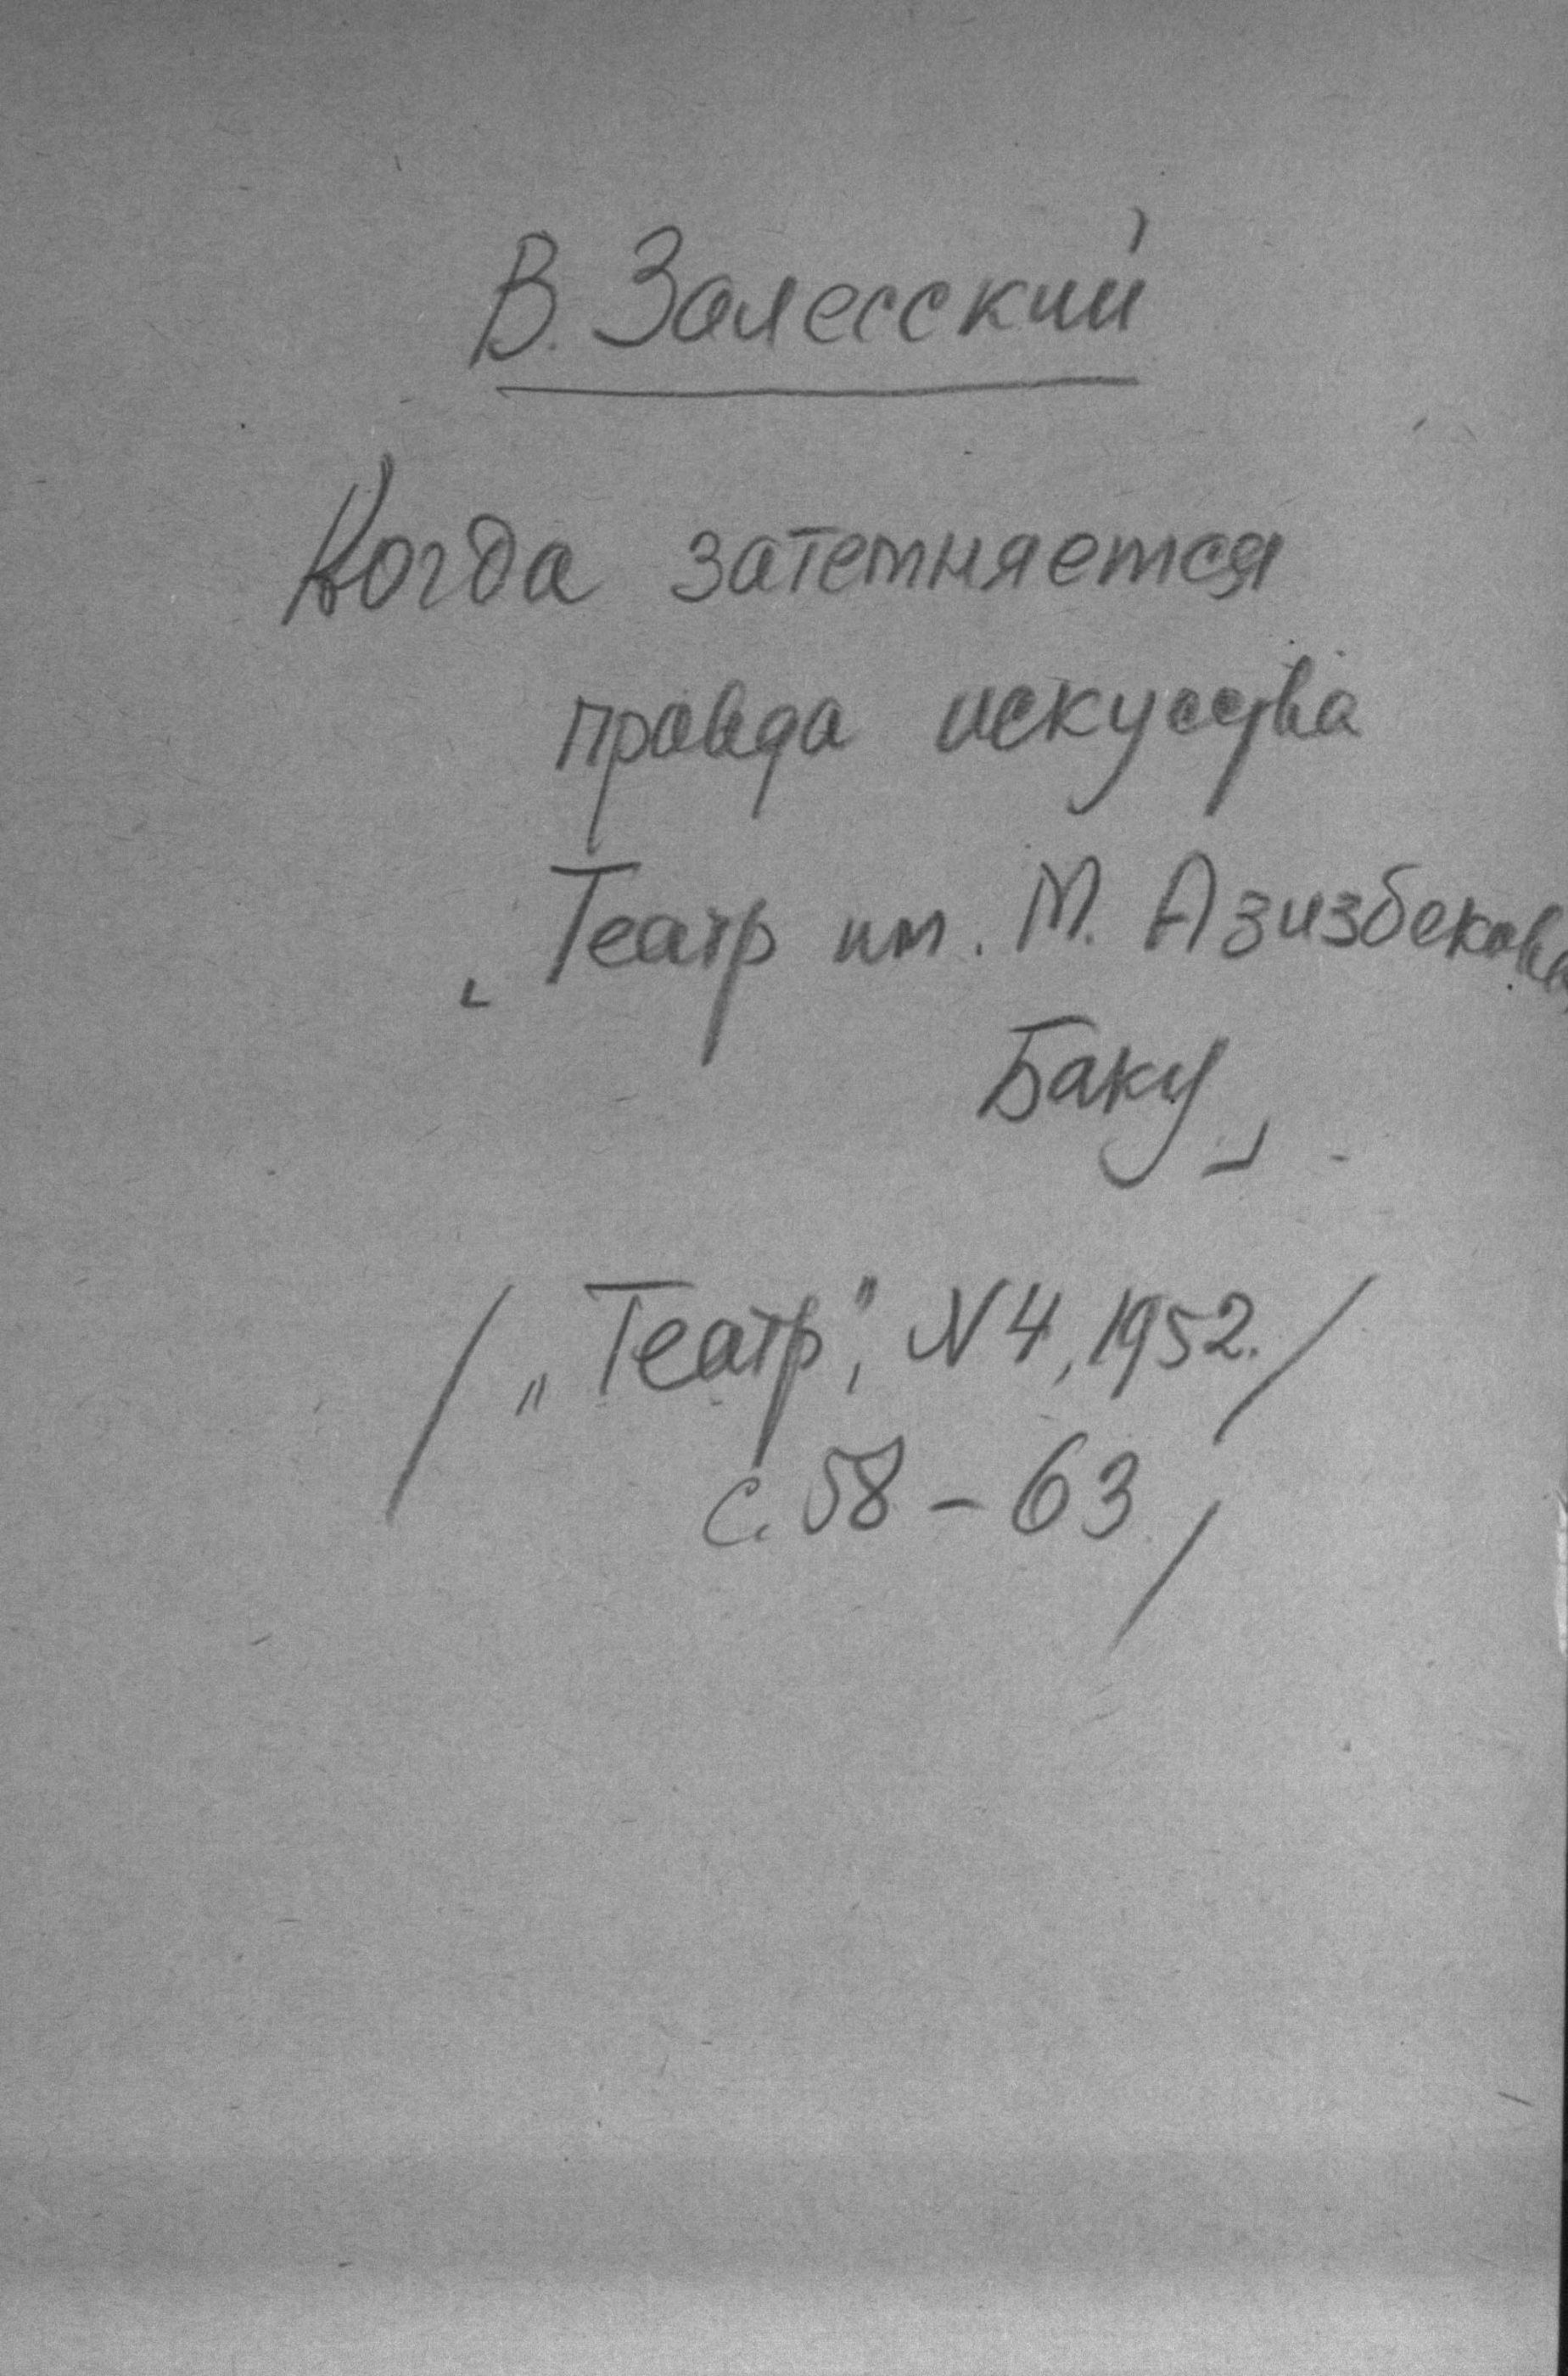 В. Залесский
Когда затемняется
правда искусства
„Театр им. М. Азизбекова
Баку”
/„Театр”, N 4, 1952./
с. 58 – 63/